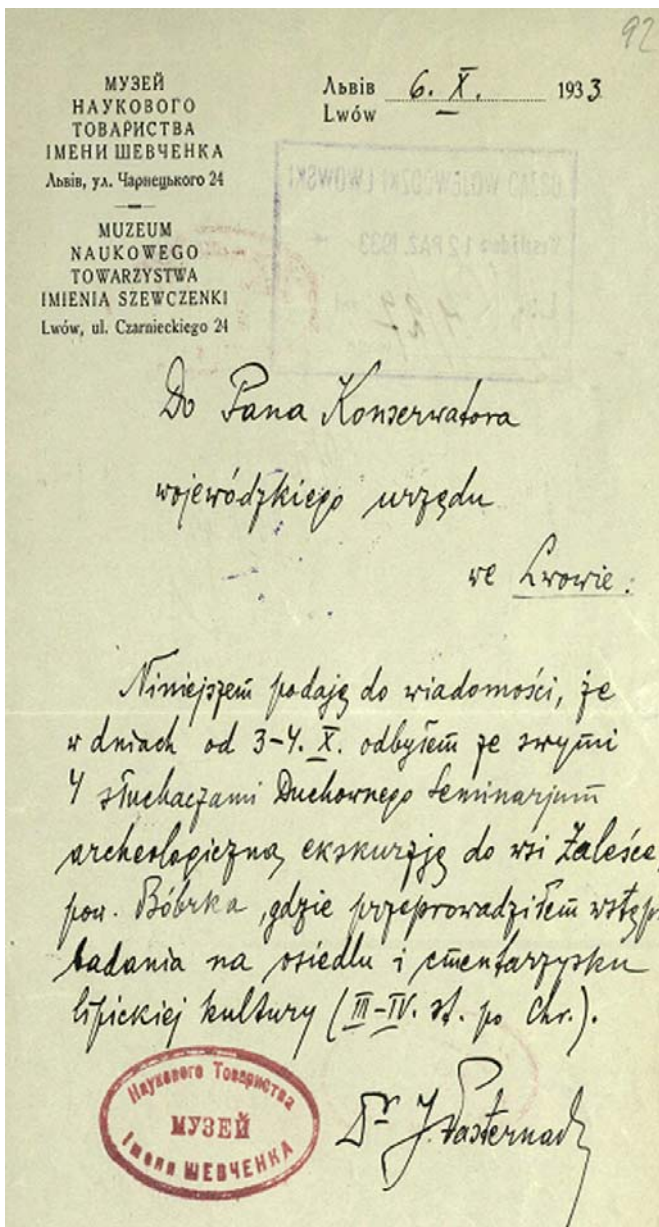 92
МУЗЕЙ
НАУКОВОГО
ТОВАРИСТВА
ІМЕНИ ШЕВЧЕНКА
Львів, ул. Чарнецького 24
MUZEUM
NAUKOWEGO
TOWARZYSTWA
IMIENIA SZEWCZENKI
Lwów, ul. Czarnieckiego 24
Львів 6. X. 1933
Lwów
URZĄD WOJEWÓDZKI LWOWSKI
12 PAŹ. 1933
Do Pana Konserwatora
wojewódzkiego urzędu
we Lwowie:
Niniejszem podaję do wiadomości, że
w dniach od 3-4. X. odbyłem ze swymi
4 słuchaczami Duchownego Seminarjum
archeologiczną ekskurzję do wsi Zaleśce,
pow. Bóbrka, gdzie przeprowadziłem wstęp.
badania na osiedlu i cmentarzysku
lipickiej kultury (III-IV. st. po Chr.).
Наукового Товариства
МУЗЕЙ
Імени ШЕВЧЕНКА
Dr J. Pasternak